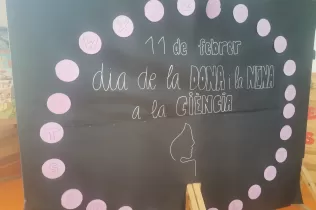 11 de febrer
dia de la DONA i la NENA
a la CIÈNCIA